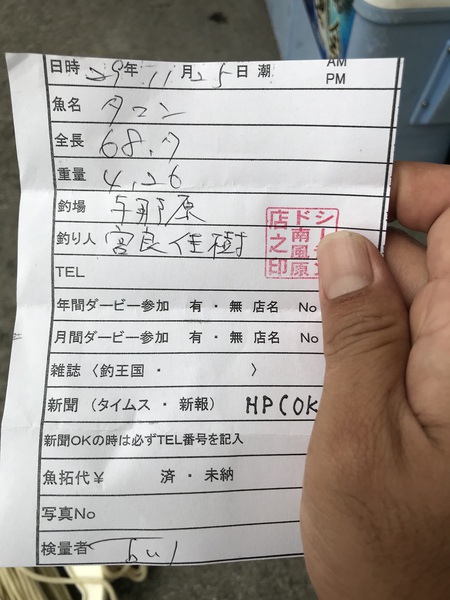 日時 29年 11月25日 潮 AM PM
魚名 タマン
全長 68.7
重量 4.26
釣場 与那原
釣り人 宮良佳樹
TEL
年間ダービー参加 有 ・ 無 店名 No
月間ダービー参加 有 ・ 無 店名 No
雑誌〈釣王国 ・ 〉
新聞 (タイムス ・ 新報) HP(OK
新聞OKの時は必ずTEL番号を記入
魚拓代¥ 済 ・ 未納
写真No
検量者
ド南風原
店之印